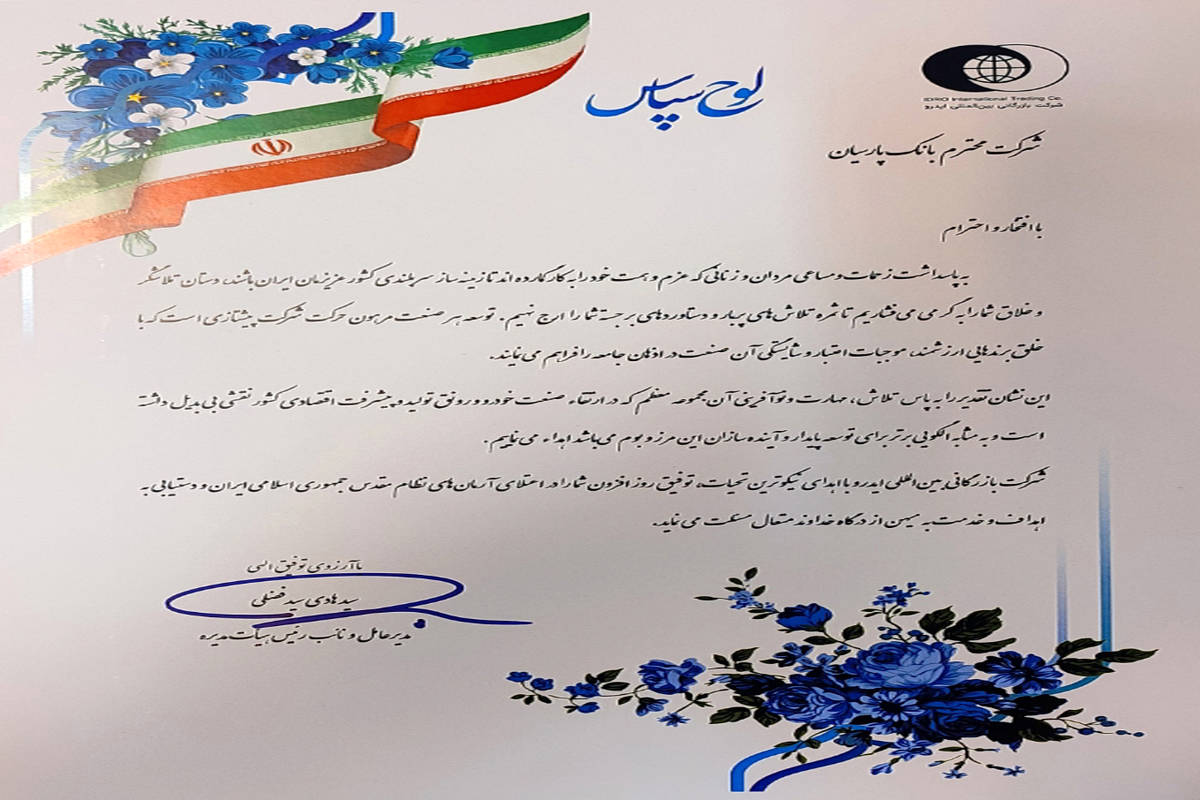 لوح سپاس
IDRO International Trading Co.
شرکت بازرگانی بین‌المللی ایدرو
شرکت محترم بانک پارسیان
با افتخار و احترام
به پاسداشت زحمات و مساعی مردان و زنانی که عزم و همت خود را به کار گمارده اند تا زمینه ساز سربلندی کشور عزیزمان ایران باشند، دستان تلاشگر
و خلاق شما را به گرمی می فشاریم تا ثمره تلاش های پربار و دستاوردهای برجسته شما را ارج نهیم. توسعه هر صنعت مرهون حرکت شرکت پیشتازی است که با
خلق برندهایی ارزشمند، موجبات اعتبار و شایستگی آن صنعت در اذهان جامعه را فراهم می نمایند.
این نشان تقدیر را به پاس تلاش، مهارت و نوآفرینی آن مجموعه معظم که در ارتقاء صنعت خودرو و رونق تولید و پیشرفت اقتصادی کشور نقشی بی بدیل داشته
است و به مثابه الگویی برتر برای توسعه پایدار و آینده سازان این مرز و بوم می باشد اهداء می نماییم.
شرکت بازرگانی بین المللی ایدرو با اهدای نیکوترین تحیات، توفیق روز افزون شما را در اعتلای آرمان های نظام مقدس جمهوری اسلامی ایران و دستیابی به
اهداف و خدمت به میهن از درگاه خداوند متعال مسئلت می نماید.
با آرزوی توفیق الهی
سید هادی سید فضلی
مدیرعامل و نائب رئیس هیات مدیره